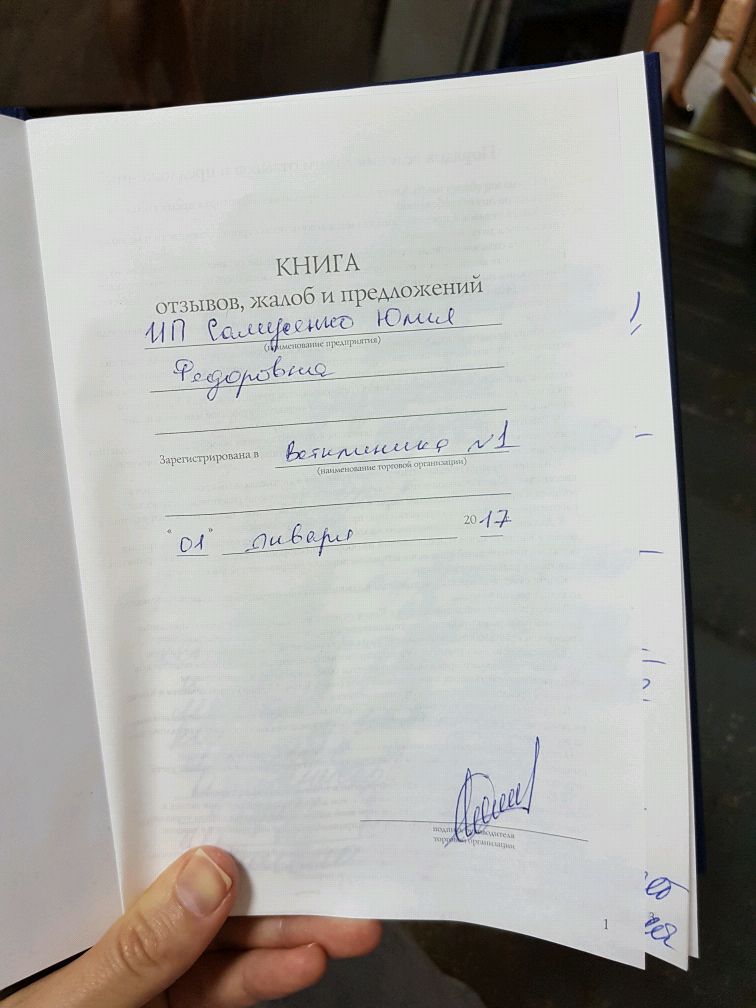 КНИГА
отзывов, жалоб и предложений
ИП Юлия
(наименование предприятия)
Федоровна
Зарегистрирована в Ветклиника №1
(наименование торговой организации)
"01" января 2017
подпись руководителя
торговой организации
1